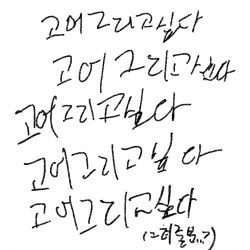 고어 그리고싶다
고어 그리고싶다
고어그리고싶다
고어그리고싶다
고어그리고싶다
(그려줄분..?)